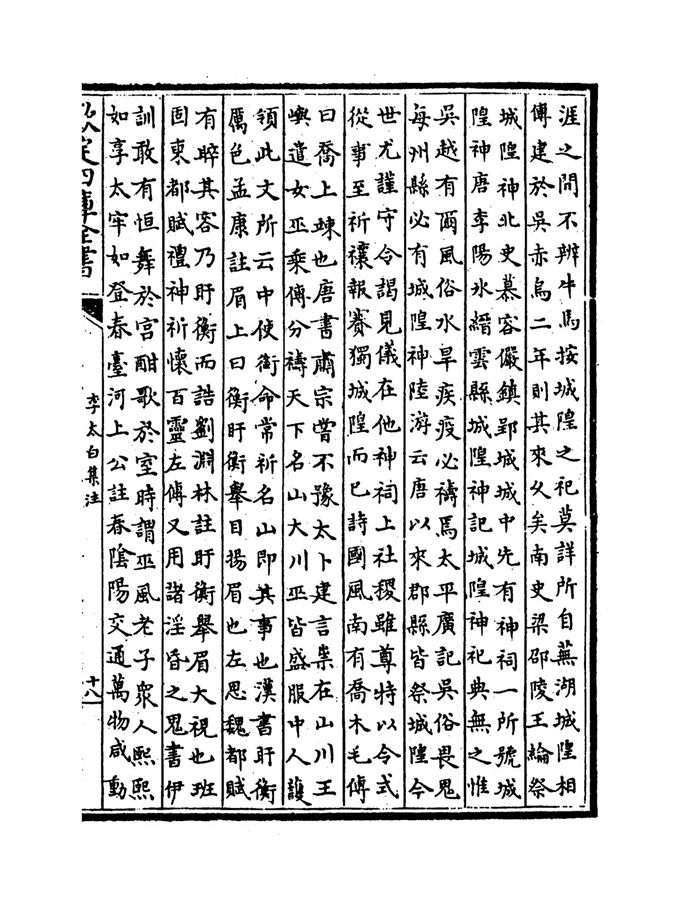 涯之間不辨牛馬按城隍之祀莫詳所自蕪湖城隍相
傳建於吳赤烏二年則其來久矣南史梁邵陵王綸祭
城隍神北史慕容儼鎮郢城城中先有神祠一所號城
隍神唐李陽氷縉雲縣城隍神記城隍神祀典無之惟
吳越有爾風俗水旱疾疫必禱焉太平廣記吳俗畏鬼
每州縣必有城隍神陸游云唐以來郡縣皆祭城隍今
世尤謹守令謁見儀在他神祠上社稷雖尊特以令式
從事至祈禳報賽獨城隍而已詩國風南有喬木毛傳
曰喬上竦也唐書肅宗嘗不豫太卜建言祟在山川王
嶼遣女巫乘傳分禱天下名山大川巫皆盛服中人護
領此文所云中使銜命常祈名山即其事也漢書盱衡
厲色孟康註眉上曰衡盱衡舉目揚眉也左思魏都賦
有睟其容乃盱衡而誥劉淵林註盱衡舉眉大視也班
固東都賦禮神祈懷百靈左傳又用諸淫昏之鬼書伊
訓敢有恒舞於宮酣歌於室時謂巫風老子衆人熙熙
如享太牢如登春臺河上公註春陰陽交通萬物咸動
欽定四庫全書
李太白集注
十八